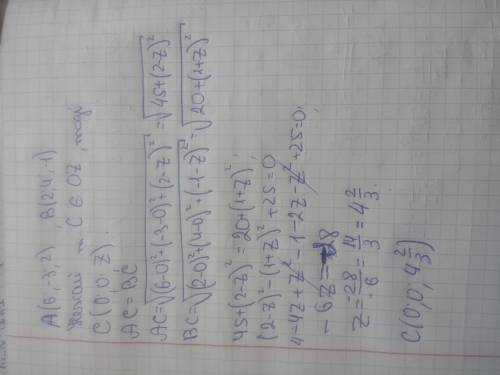 A(6;-3;2) , B(2;4;-1)
Нехай т C ∈ OZ , тоді
C(0; 0; Z).
AC = BC
AC=√(6-0)²+(-3-0)²+(2-Z)² = √45+(2-Z)²
BC=√(2-0)²+(4-0)²+(-1-Z)² = √20+(1+Z)²
45+(2-Z)² = 20+(1+Z)²;
(2-Z)²-(1+Z)²+25=0
4-4Z+Z²-1-2Z-Z²+25=0;
-6Z=-28
Z=-28/-6=14/3=4 2/3.
C(0; 0; 4 2/3)